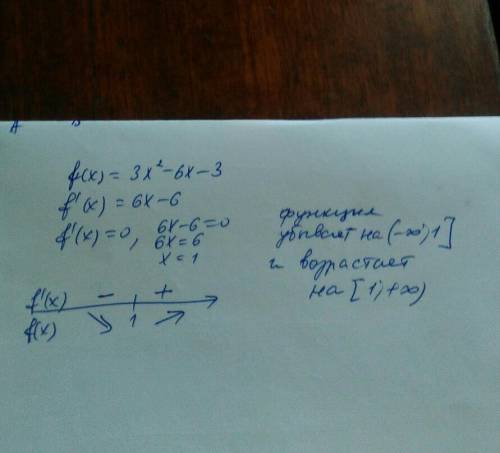 f(x) = 3x²-6x-3
f'(x) = 6x-6
f'(x)=0, 6x-6=0
6x=6
x=1
f'(x) - +
f(x) ↘ 1 ↗
функция
убывает на (-∞;1]
и возрастает
на [1;+∞)